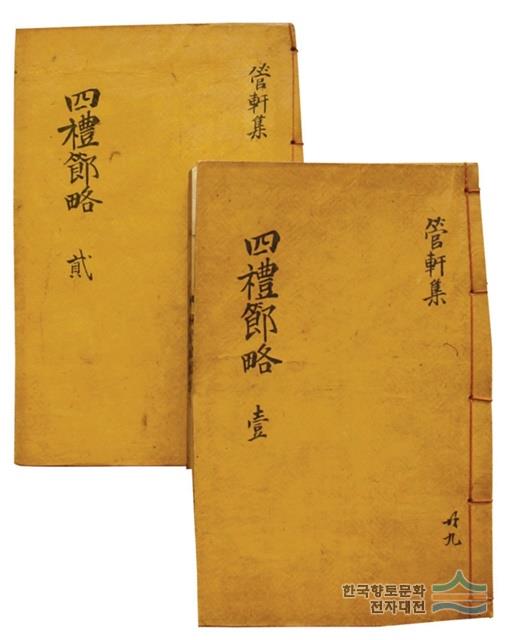 管軒集
四禮節略
貳
管軒集
四禮節略
壹
廾九
한국향토문화
전자대전